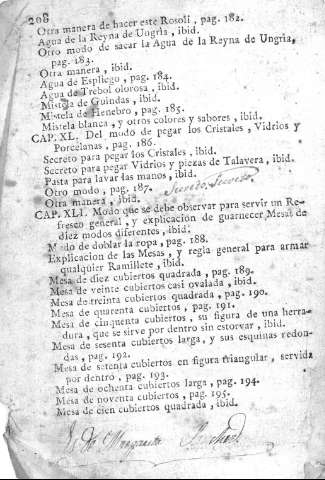 208
Otra manera de hacer este Rosoli, pag. 182.
Agua de la Reyna de Ungria, ibid.
Otro modo de sacar la Agua de la Reyna de Ungria,
pag. 183.
Otra manera, ibid.
Agua de Espliego, pag. 184.
Agua de Trebol olorosa, ibid.
Mistela de Guindas, ibid.
Mistela de Henebro, pag. 185.
Mistela blanca, y otros colores y sabores, ibid.
CAP. XL. Del modo de pegar los Cristales, Vidrios y
Porcelanas, pag. 186.
Secreto para pegar los Cristales, ibid.
Secreto para pegar Vidrios y piezas de Talavera, ibid.
Pasta para lavar las manos, ibid.
Otro modo, pag. 187.
Otra manera, ibid.
CAP. XLI. Modo que se debe observar para servir un Re-
fresco general, y explicacion de guarnecer Mesas de
diez modos diferentes, ibid.
Modo de doblar la ropa, pag. 188.
Explicacion de las Mesas, y regla general para armar
qualquier Ramillete, ibid.
Mesa de diez cubiertos quadrada, pag. 189.
Mesa de veinte cubiertos casi ovalada, ibid.
Mesa de treinta cubiertos quadrada, pag. 190.
Mesa de quarenta cubiertos, pag. 191.
Mesa de cinquenta cubiertos, su figura de una herra-
dura, que se sirve por dentro sin estorvar, ibid.
Mesa de sesenta cubiertos larga, y sus esquinas redon-
das, pag. 192.
Mesa de setenta cubiertos en figura triangular, servida
por dentro, pag. 193.
Mesa de ochenta cubiertos larga, pag. 194.
Mesa de noventa cubiertos, pag. 195.
Mesa de cien cubiertos quadrada, ibid.